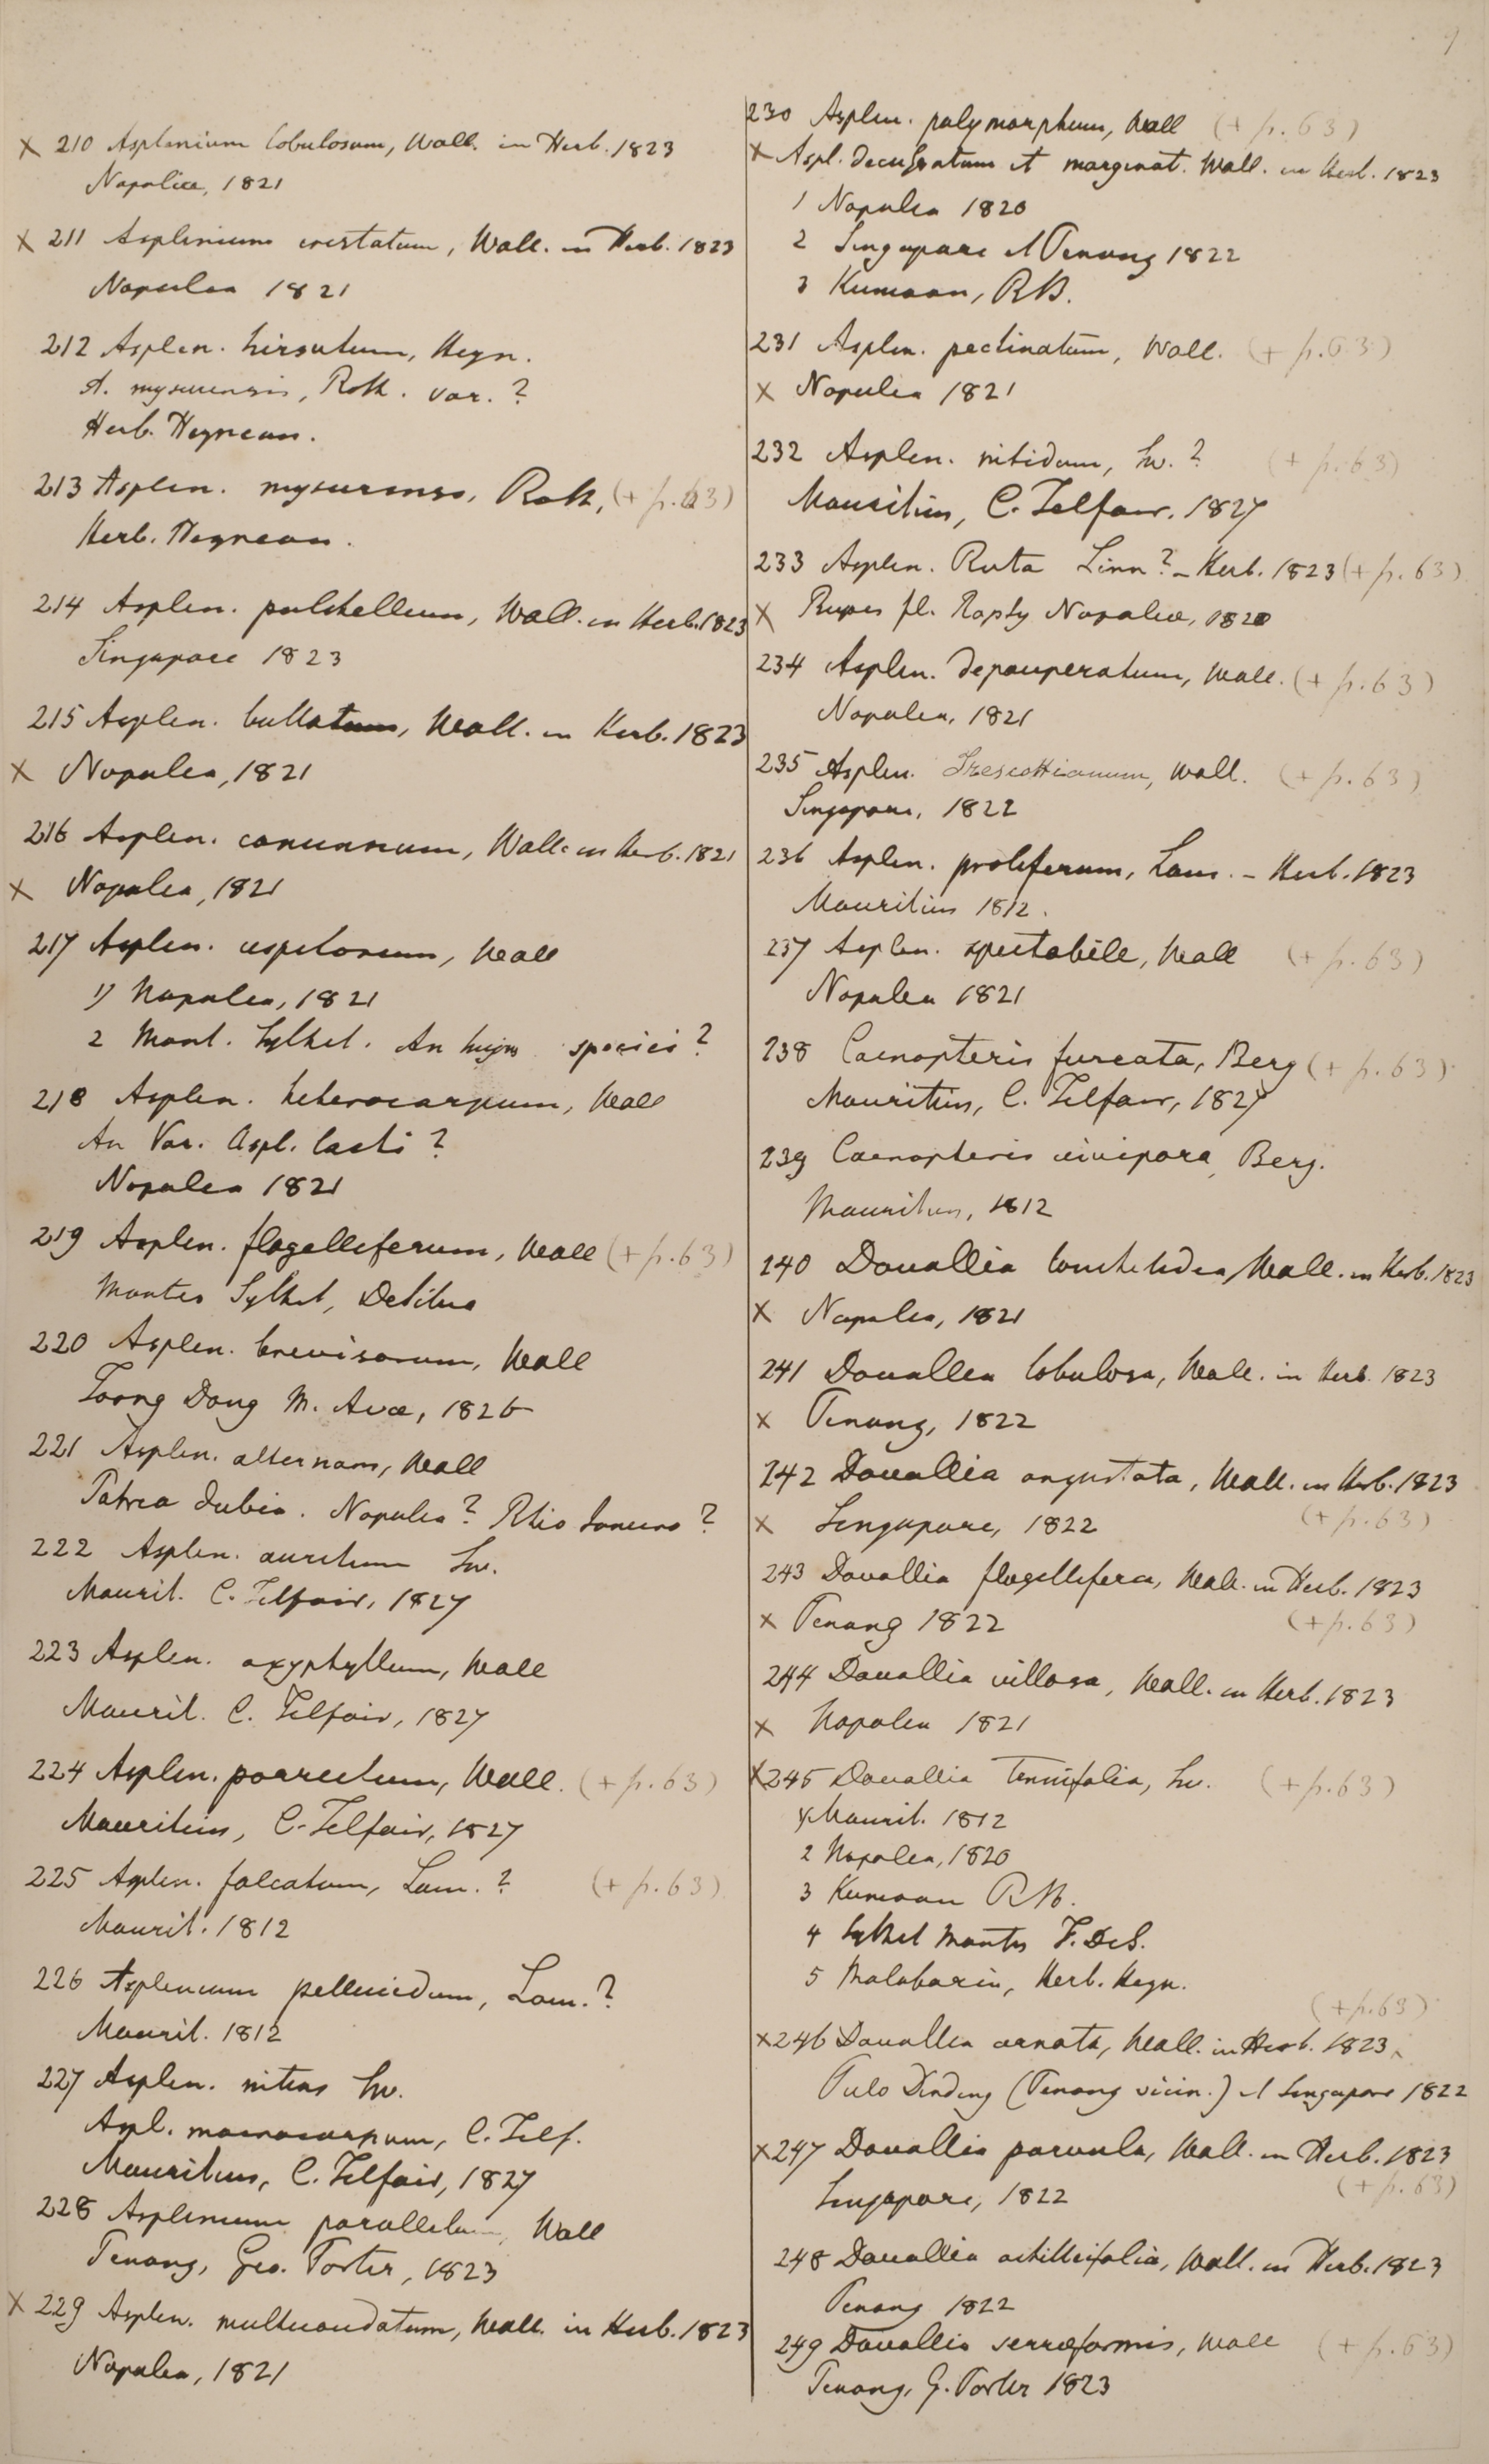 9
x 210 Asplenium lobulosum, Wall. in Herb. 1823
Napaliæ, 1821
x 211 Asplenium cristatum, Wall. in Herb. 1823
Napalia 1821
212 Asplen. hirsutum, Heyn.
A. mysurensis, Roth. var. ?
Herb. Heynean.
213 Asplen. mysurense, Roth, (+ p. 63)
Herb. Heynean.
214 Asplen. pulchellum, Wall. in Herb. 1823
Singapore 1823
215 Asplen. bullatum, Wall. in Herb. 1823
x Napalea, 1821
216 Asplen. concinnum, Wall. in Herb. 1821
x Napalea, 1821
217 Asplen. cespitosum, Wall
1) Napalea, 1821
2 Mont. Sylhet. An hujus speciei ?
218 Asplen. heterocarpum, Wall
An Var. Aspl. lacti ?
Napalea 1821
219 Asplen. flagelliferum, Wall (+ p. 63)
Montes Sylhet, Desilva
220 Asplen. brevisorum, Wall
Toong Dong M. Avæ, 1826
221 Asplen. alternans, Wall
Patria dubia. Napalea ? Rhio Janeiro ?
222 Asplen. auritum Sw.
Maurit. C. Telfair, 1827
223 Asplen. oxyphyllum, Wall
Maurit. C. Telfair, 1827
224 Asplen. porrectum, Wall. (+ p. 63)
Mauritius, C. Telfair, 1827
225 Asplen. falcatum, Lam. ? (+ p. 63)
Maurit. 1812
226 Asplenium pellucidum, Lam. ?
Maurit. 1812
227 Asplen. nitens Sw.
Aspl. macrocarpum, C. Telf.
Mauritius, C. Telfair, 1827
228 Asplenium parallelum, Wall
Penang, Geo. Porter, 1823
x 229 Asplen. multicaudatum, Wall. in Herb. 1823
Napalea, 1821
230 Asplen. polymorphum, Wall (+ p. 63)
x Aspl. decussatum et marginat. Wall. in Herb. 1823
1 Napalea 1820
2 Singapore et Penang 1822
3 Kumaon, R.B.
231 Asplen. pectinatum, Wall. (+ p. 63)
x Napalea 1821
232 Asplen. nitidum, Sw. ? (+ p. 63)
Mauritius, C. Telfair. 1827
233 Asplen. Ruta Linn ? - Herb. 1823 (+ p. 63)
x Rupes fl. Rapty Napaliæ, 1820
234 Asplen. depauperatum, Wall. (+ p. 63)
Napalea, 1821
235 Asplen. Trescottianum, Wall. (+ p. 63)
Singapore, 1822
236 Asplen. proliferum, Lam. - Herb. 1823
Mauritius 1812.
237 Asplen. spectabile, Wall (+ p. 63)
Napalea 1821
238 Caenopteris furcata, Berg (+ p. 63)
Mauritius, C. Telfair, 1827
239 Caenopteris vivipara, Berg.
Mauritius, 1812
240 Davallia lonchitidea, Wall. in Herb. 1823
x Napalea, 1821
241 Davallea lobulosa, Wall. in Herb. 1823
x Penang, 1822
242 Davallia angustata, Wall. in Herb. 1823
x Singapore, 1822 (+ p. 63)
243 Davallia flagellifera, Wall. in Herb. 1823
x Penang 1822 (+ p. 63)
244 Davallia villosa, Wall. in Herb. 1823
x Napalea 1821
x 245 Davallia tenuifolia, Sw. (+ p. 63)
1 Maurit. 1812
2 Napalea, 1820
3 Kumaon R.B.
4 Sylhet Montes F. DeS.
5 Malabaria, Herb. Heyn.
(+ p. 63)
x 246 Davallia ornata, Wall. in Herb. 1823
Pulo Dinding (Penang vicin.) et Singapore 1822
x 247 Davallia parvula, Wall. in Herb. 1823
Singapore, 1822 (+ p. 63)
248 Davallia achilleifolia, Wall. in Herb. 1823
Penang 1822
249 Davallia serræformis, Wall (+ p. 63)
Penang, G. Porter 1823